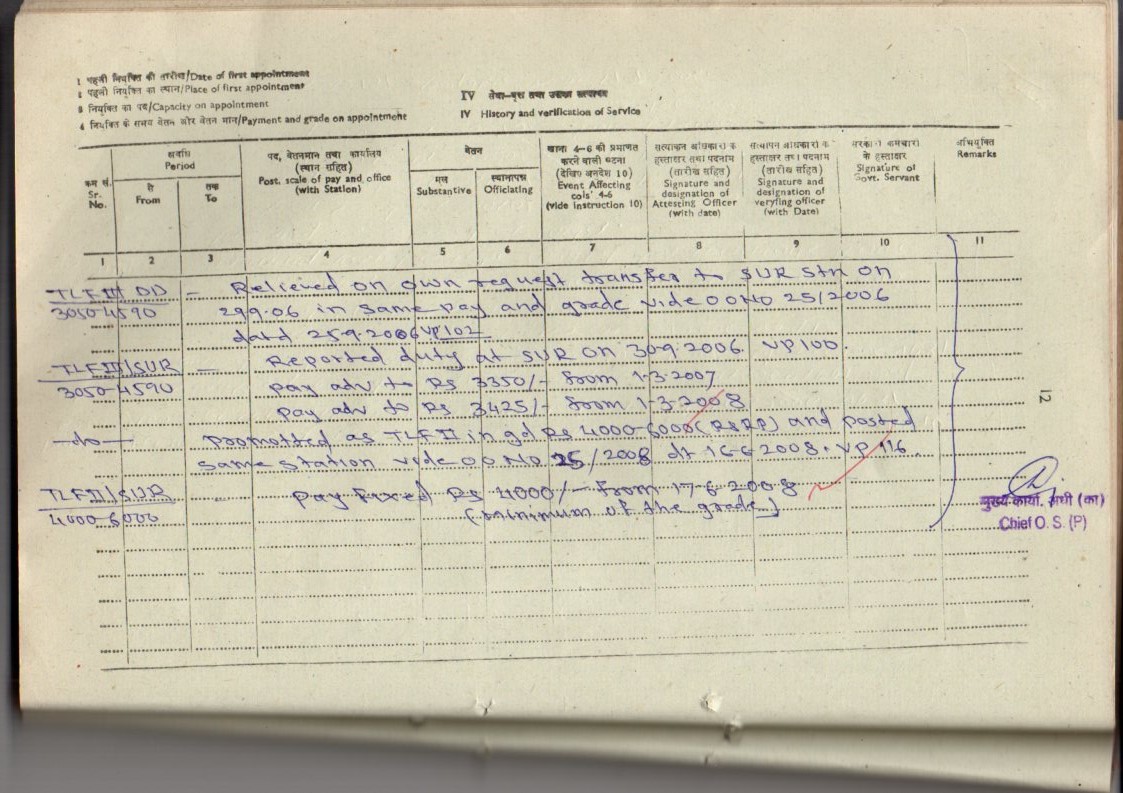 1 पहली नियुक्ति की तारीख/Date of first appointment
2 पहली नियुक्ति का स्थान/Place of first appointment
3 नियुक्ति का पद/Capacity on appointment
4 नियुक्ति के समय वेतन और वेतन मान/Payment and grade on appointment
IV सेवा-वृत्त तथा उसका सत्यापन
IV History and verification of Service
क्रम सं. Sr. No.
अवधि Period
से From
तक To
पद, वेतनमान तथा कार्यालय (स्थान सहित) Post. scale of pay and office (with Station)
वेतन
मूल Substantive
स्थानापन्न Officiating
खाना 4-6 को प्रमाणित करने वाली घटना (देखिए अनदेश 10) Event Affecting cols' 4-6 (vide Instruction 10)
सत्यापन अधिकारी के हस्ताक्षर तथा पदनाम (तारीख सहित) Signature and designation of Attesting Officer (with date)
सत्यापन अधिकारी के हस्ताक्षर तथा पदनाम (तारीख सहित) Signature and designation of veryfing officer (with Date)
सरकारी कर्मचारी के हस्ताक्षर Signature of Govt. Servant
अभियुक्ति Remarks
1 2 3 4 5 6 7 8 9 10 11
TLF III DD – Relieved on own request transfer to SUR Stn on
3050-4590 29.9.06 in same pay and grade vide OO No 25/2006
datd 25.9.2006 VP 102
TLF III/SUR – Reported duty at SUR on 30.9.2006. VP 100.
3050-4590 Pay adv to Rs 3350/- from 1-3-2007
Pay adv to Rs 3425/- from 1-3-2008
–do– promotted as TLF II in gd Rs 4000-6000 (RSRP) and posted
same station vide OO No 25/2008 dt 16-6-2008. VP 116
TLF II/SUR Pay Fixed Rs 4000/- from 17-6-2008
4000-6000 (minimum of the grade)
12
मुख्य कार्या. अधी (का)
Chief O. S. (P)